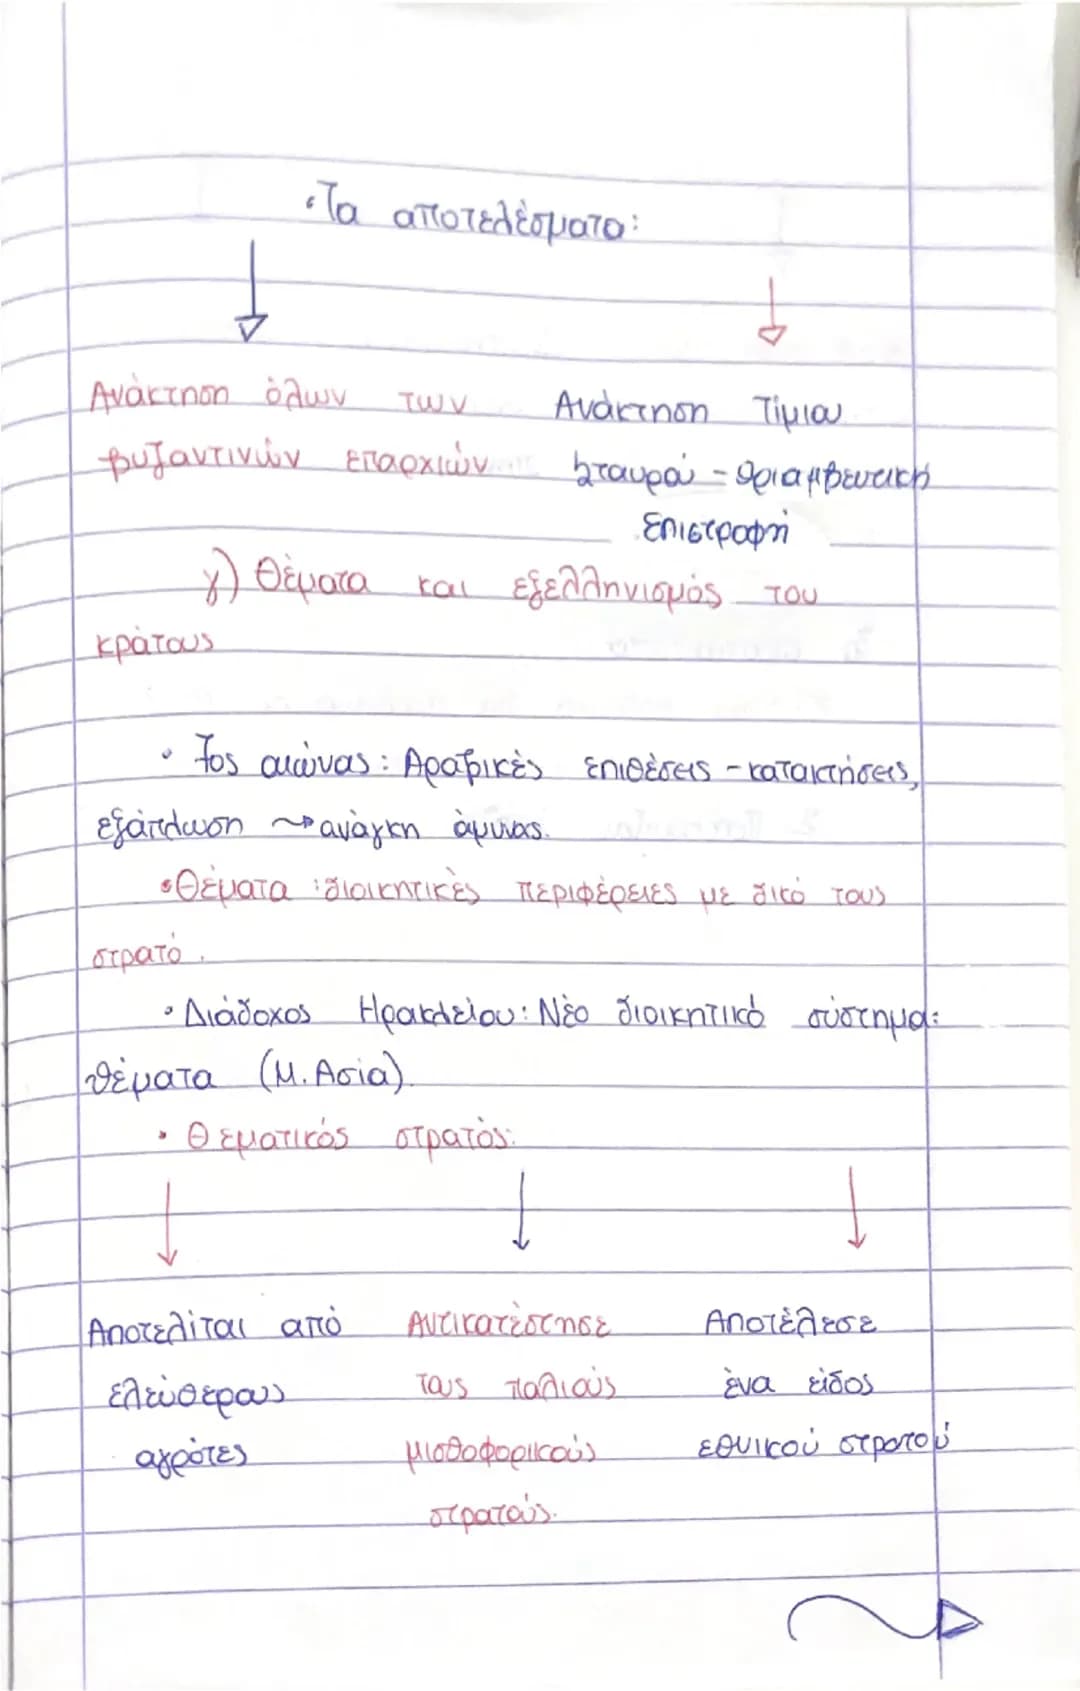 • Τα αποτελέσματα:
Ανάκτηση όλων των
βυζαντινών επαρχιών
Ανάκτηση Τίμιου
Σταυρού - θριαμβευτική
επιστροφή
γ) Θέματα και εξελληνισμός του
κράτους
• 7ος αιώνας: Αραβικές επιθέσεις - κατακτήσεις,
εξάπλωση → ανάγκη άμυνας.
• Θέματα : διοικητικές περιφέρειες με δικό τους
στρατό.
• Διάδοχος Ηρακλείου: Νέο διοικητικό σύστημα:
θέματα (Μ. Ασία)
• Θεματικός στρατός:
Αποτελίται από
ελεύθερους
αγρότες
Αντικατέστησε
τους παλιούς
μισθοφορικούς
στρατούς.
Αποτέλεσε
ένα είδος
εθνικού στρατού